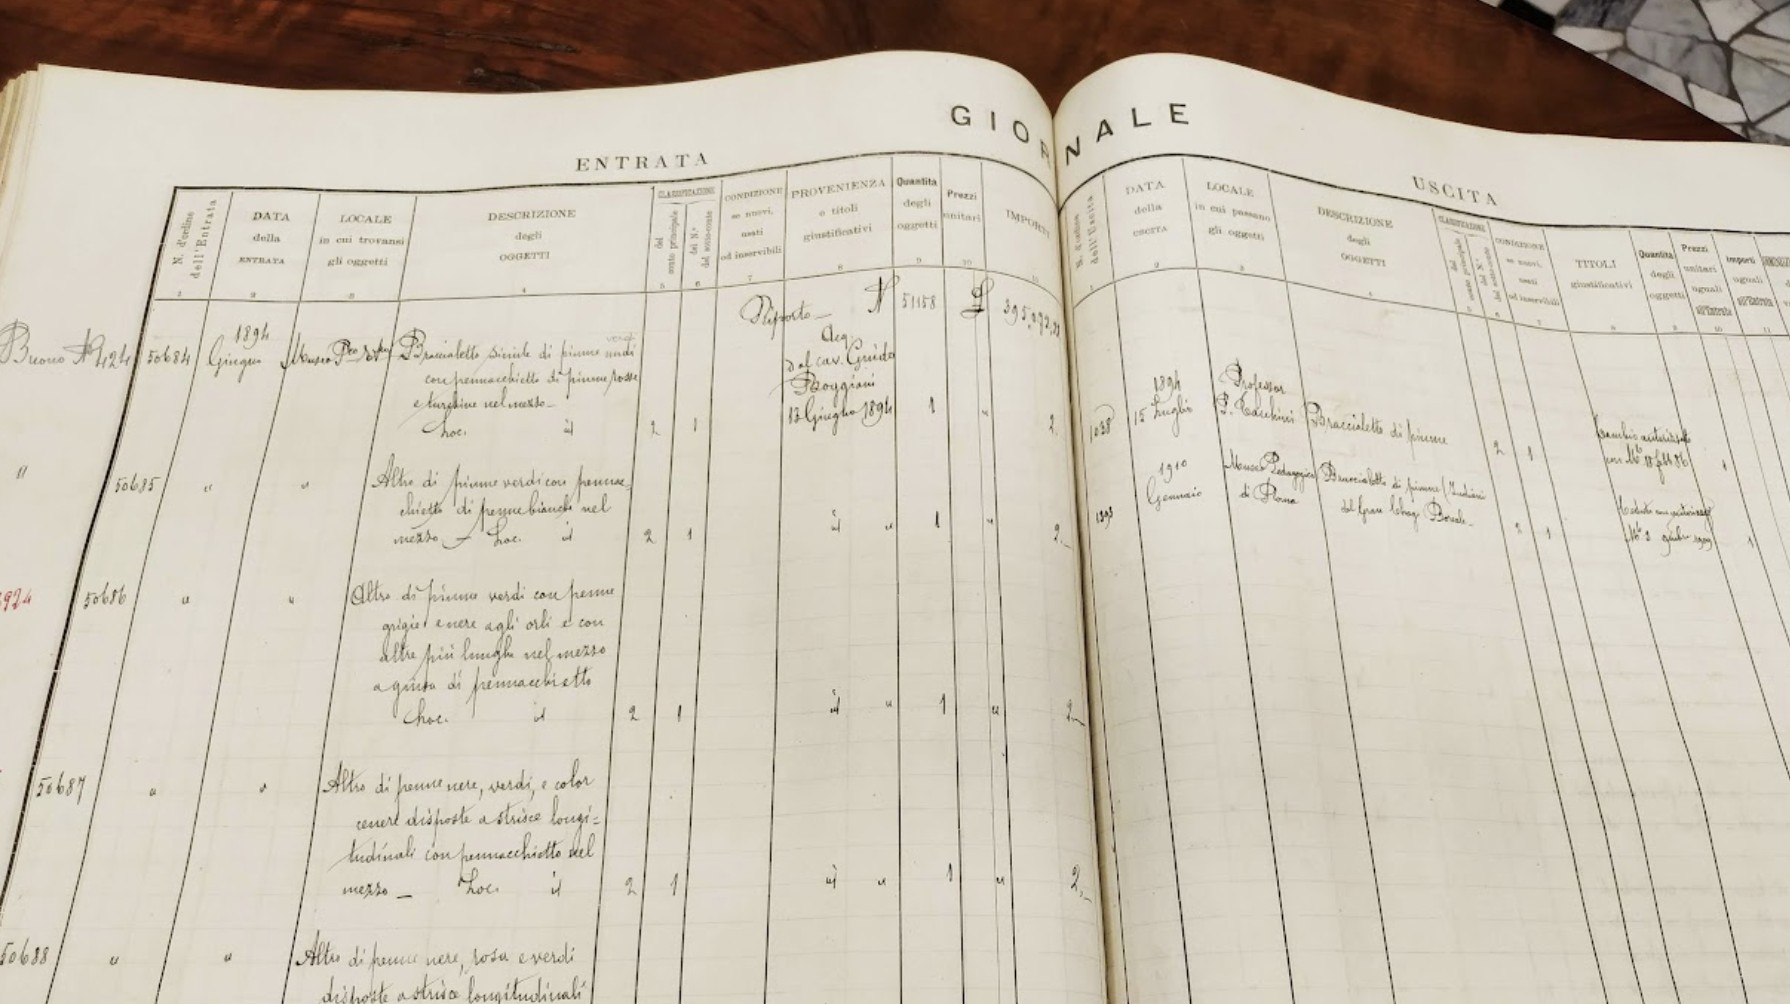 GIORNALE
ENTRATA
N. d'ordine dell'Entrata
DATA della ENTRATA
LOCALE in cui trovansi gli oggetti
DESCRIZIONE degli OGGETTI
CLASSIFICAZIONE
del conto principale
del N.º del sotto-conto
CONDIZIONE se nuovi, usati od inservibili
PROVENIENZA e titoli giustificativi
Quantità degli oggetti
Prezzi unitari
IMPORTI
1 2 3 4 5 6 7 8 9 10 11
Riporto N 51158 £
Buono Nº 424 50684 1894 Giugno Museo
Braccialetto simile di piume verdi
con pennacchietto di piume rosse
e turchine nel mezzo
id 2 1
Acq.
dal cav. Guido
Boggiani
13 Giugno 1894 1 " 2.
" 50685 " "
Altro di piume verdi con pennac-
chietto di penne bianche nel
mezzo id 2 1 id " 1 " 2._
924 50686 " "
Altro di piume verdi con penne
grigie e nere agli orli e con
altre più lunghe nel mezzo
a guisa di pennacchietto
id 2 1 id " 1 " 2._
50687 " "
Altro di penne nere, verdi, e color
cenere disposte a strisce longi=
tudinali con pennacchietto nel
mezzo _ id 2 1 id " 1 " 2._
50688 " "
Altro di penne nere, rosa e verdi
disposte a strisce longitudinali
USCITA
N. d'ordine dell'Uscita
DATA della USCITA
LOCALE in cui passano gli oggetti
DESCRIZIONE degli OGGETTI
CLASSIFICAZIONE
del conto principale
del N.º del sotto-conto
CONDIZIONE se nuovi, usati od inservibili
TITOLI giustificativi
Quantità degli oggetti
Prezzi unitari uguali all'Entrata
Importi uguali all'Entrata
1894
15 Luglio
Professor
Braccialetto di piume 2 1
1
1910
Gennaio
Museo Pedagogico
di Roma
Braccialetto di piume (Indiani
del Gran Chaco Boreale_ 2 1
1